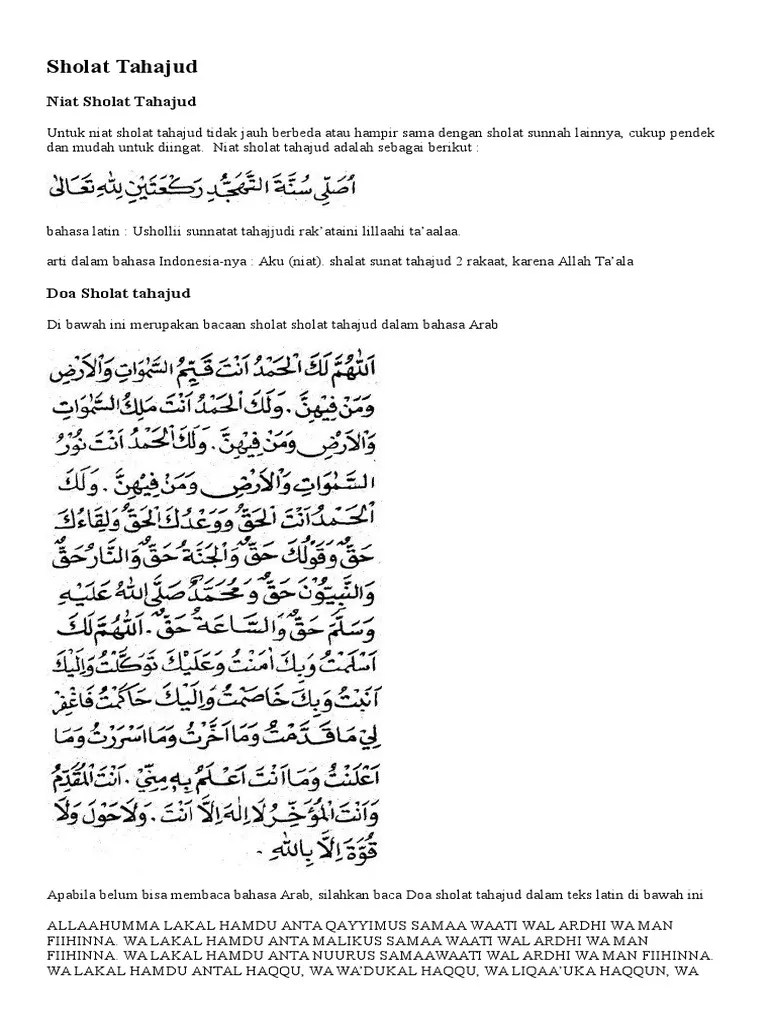 Sholat Tahajud
Niat Sholat Tahajud
Untuk niat sholat tahajud tidak jauh berbeda atau hampir sama dengan sholat sunnah lainnya, cukup pendek
dan mudah untuk diingat.  Niat sholat tahajud adalah sebagai berikut :
اُصَلِّى سُنَّةَ التَّهَجُّدِ رَكْعَتَيْنِ لِلّٰهِ تَعَالٰى
bahasa latin : Ushollii sunnatat tahajjudi rak’ataini lillaahi ta’aalaa.
arti dalam bahasa Indonesia-nya : Aku (niat). shalat sunat tahajud 2 rakaat, karena Allah Ta’ala
Doa Sholat tahajud
Di bawah ini merupakan bacaan sholat sholat tahajud dalam bahasa Arab
اَللّٰهُمَّ لَكَ الْحَمْدُ اَنْتَ قَيِّمُ السَّمٰوَاتِ وَالْاَرْضِ
وَمَنْ فِيْهِنَّ. وَلَكَ الْحَمْدُ اَنْتَ مَلِكُ السَّمٰوَاتِ
وَالْاَرْضِ وَمَنْ فِيْهِنَّ. وَلَكَ الْحَمْدُ اَنْتَ نُوْرُ
السَّمٰوَاتِ وَالْاَرْضِ وَمَنْ فِيْهِنَّ. وَلَكَ
الْحَمْدُ اَنْتَ الْحَقُّ وَوَعْدُكَ الْحَقُّ وَلِقَاءُكَ
حَقٌّ وَقَوْلُكَ حَقٌّ وَالْجَنَّةُ حَقٌّ وَالنَّارُ حَقٌّ
وَالنَّبِيُّوْنَ حَقٌّ وَمُحَمَّدٌ صَلَّى اللهُ عَلَيْهِ
وَسَلَّمَ حَقٌّ وَالسَّاعَةُ حَقٌّ. اَللّٰهُمَّ لَكَ
اَسْلَمْتُ وَبِكَ اٰمَنْتُ وَعَلَيْكَ تَوَكَّلْتُ وَاِلَيْكَ
اَنَبْتُ وَبِكَ خَاصَمْتُ وَاِلَيْكَ حَاكَمْتُ فَاغْفِرْ
لِيْ مَا قَدَّمْتُ وَمَا اَخَّرْتُ وَمَا اَسْرَرْتُ وَمَا
اَعْلَنْتُ وَمَا اَنْتَ اَعْلَمُ بِهٖ مِنِّيْ. اَنْتَ الْمُقَدِّمُ
وَاَنْتَ الْمُؤَخِّرُ لَا اِلٰهَ اِلَّا اَنْتَ. وَلَا حَوْلَ وَلَا
قُوَّةَ اِلَّا بِاللهِ.
Apabila belum bisa membaca bahasa Arab, silahkan baca Doa sholat tahajud dalam teks latin di bawah ini
ALLAAHUMMA LAKAL HAMDU ANTA QAYYIMUS SAMAA WAATI WAL ARDHI WA MAN
FIIHINNA. WA LAKAL HAMDU ANTA MALIKUS SAMAA WAATI WAL ARDHI WA MAN
FIIHINNA. WA LAKAL HAMDU ANTA NUURUS SAMAAWAATI WAL ARDHI WA MAN FIIHINNA.
WA LAKAL HAMDU ANTAL HAQQU, WA WA’DUKAL HAQQU, WA LIQAA’UKA HAQQUN, WA